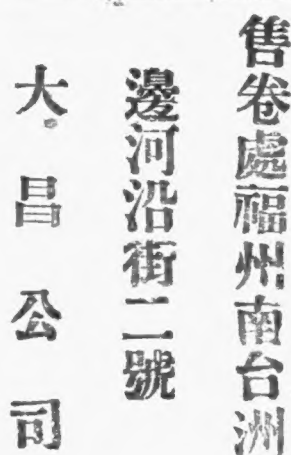 售卷處福州南台洲
邊河沿街二號
大昌公司